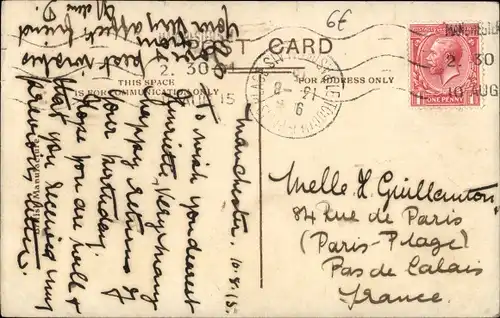 6E
POST CARD
THIS SPACE
IS FOR COMMUNICATION ONLY
FOR ADDRESS ONLY
MANCHESTER
2. 30
10 AUG
ONE PENNY
Manchester. 10.8.15.
To wish you dearest
Henriette, very many
happy returns of
your birthday.
Hope you are well &
that you received my
previous letter.
best wishes
from
Your very affect. friend
Melle H. Guillemton
84 Rue de Paris
(Paris-Plage)
Pas de Calais
France.